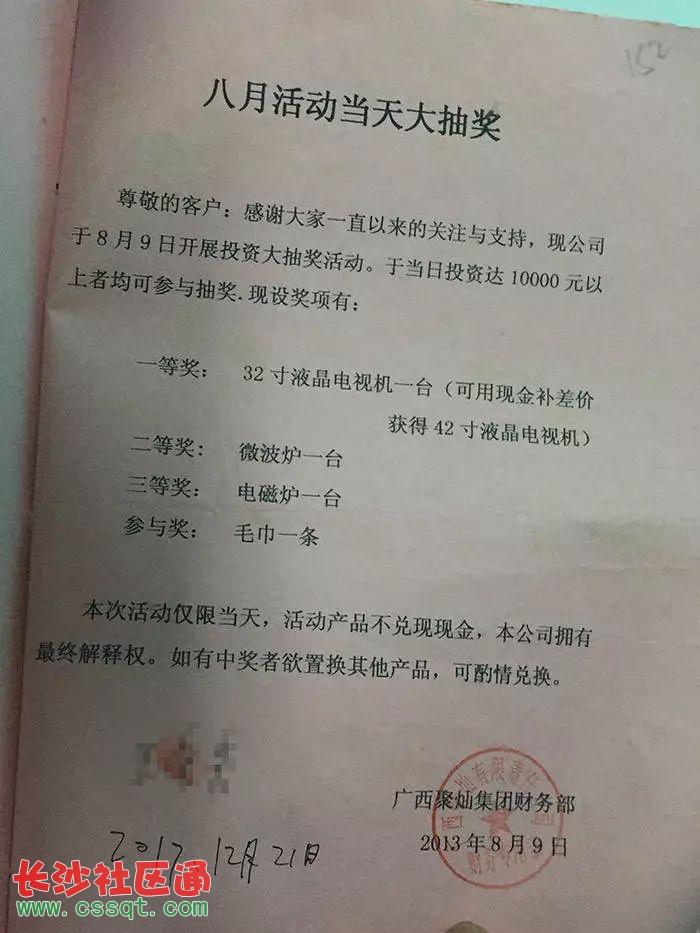 152
八月活动当天大抽奖
尊敬的客户：感谢大家一直以来的关注与支持，现公司
于8月9日开展投资大抽奖活动。于当日投资达10000元以
上者均可参与抽奖.现设奖项有：
一等奖： 32寸液晶电视机一台（可用现金补差价
获得42寸液晶电视机）
二等奖: 微波炉一台
三等奖： 电磁炉一台
参与奖： 毛巾一条
本次活动仅限当天，活动产品不兑现现金，本公司拥有
最终解释权。如有中奖者欲置换其他产品，可酌情兑换。
广西聚灿集团财务部
2013年8月9日
2017 12月21日
长沙社区通
www.cssqt.com